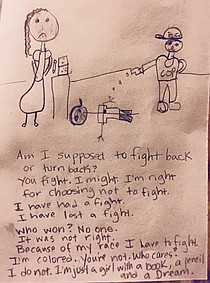 BIG
COP
Am I supposed to fight back
or turn back?
You fight. I might. I'm right
for choosing not to fight.
I have had a fight.
I have lost a fight.
Who won? No one.
It was not right.
Because of my race I have to fight.
I'm colored. You're not. Who cares?
I do not. I'm just a girl with a book, a pencil
and a Dream.